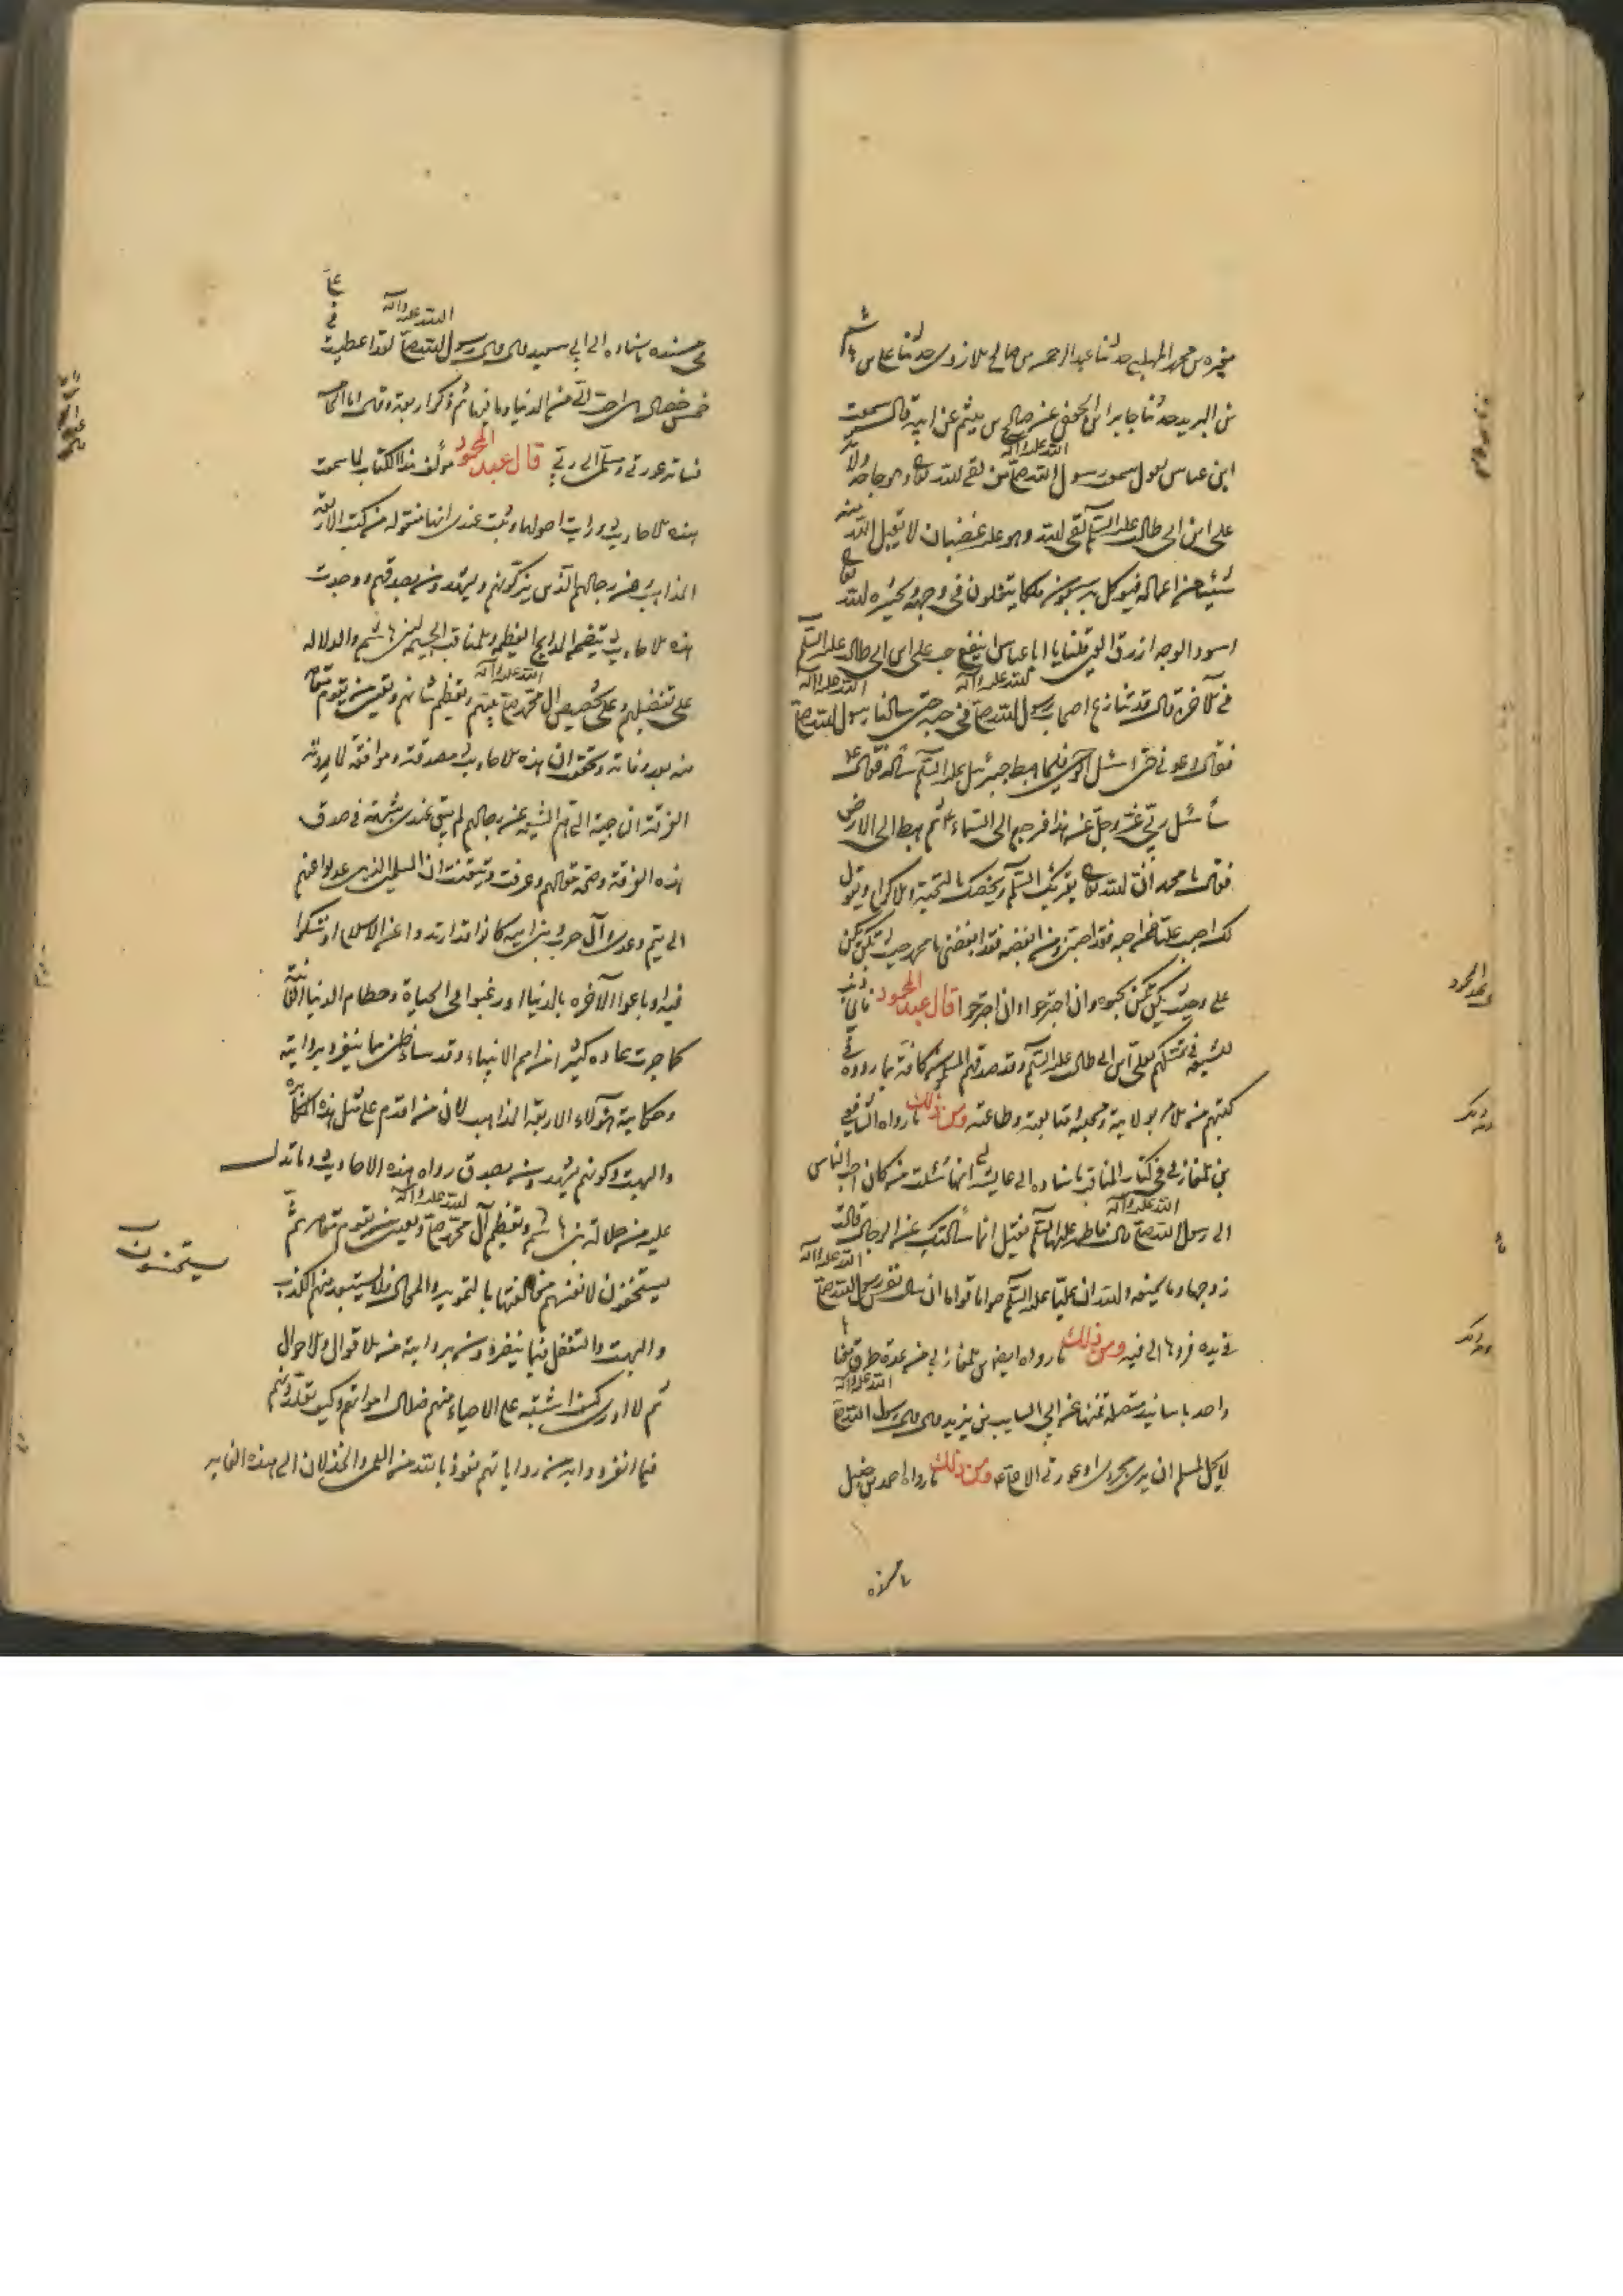 مغيرة بن محمد المهلبي حدثنا عبد الرحمن بن صالح الازدي حدثنا علي بن هاشم
بن البريد حدثنا جابر الجعفي عن صالح بن ميثم عن ابيه قال سمعت
ابن عباس يقول سمعت رسول الله صلى الله عليه وآله من لقى الله تعالى وهو جاحد ولاية
علي ابن ابي طالب عليه السلم لقى الله وهو عليه غضبان لا يقبل الله منه
شيئا من اعماله فيوكل به سبعون ملكا يتفلون في وجهه ويحشره الله تعالى
اسود الوجه ازرق العين قلنا يا ابا عباس اينفع حب علي ابن ابي طالب عليه السلم
في الآخرة قال قد تنازع اصحاب رسول الله صلى الله عليه وآله في حبه حتى سالنا رسول الله صلى الله عليه وآله
فقال دعوني حتى اسئل الوحي فلما هبط جبرئيل عليه السلم ساله فقال
سأسئل ربي عز وجل عن هذا فرجع الى السماء ثم هبط الى الارض
فقال يا محمد ان الله تعالى يقرئك السلم ويخصك بالتحية والاكرام ويقول
لك احب عليا فمن احبه فقد احبني ومن ابغضه فقد ابغضني يا محمد حيث تكن يكن
علي وحيث يكن علي يكن محبوه وان اجترحوا وان اجترحوا قال عبد المحمود فاي ذنب
للشيعة في تمسكهم بعلي ابن ابي طالب عليه السلم وقد صدقهم المسلمون كافة بما رووه في
كتبهم من الامر بولايته ومحبته ومتابعته وطاعته ومن ذلك ما رواه الشافعي
بن المغازلي في كتاب المناقب باسناده الى عايشة انها سئلت من كان احب الناس
الى رسول الله صلى الله عليه وآله قالت فاطمة عليها السلم فقيل انما سألتك عن الرجال قالت
زوجها وما يمنعه والله ان عليا عليه السلم صواما قواما ان سالت نفس رسول الله صلى الله عليه وآله
في يده فردها الى فيه ومن ذلك ما رواه ايضا بن المغازلي من عدة طرق
واحد باسانيد متصلة فمنها عن ابي السايب بن يزيد قال قال رسول الله صلى الله عليه وآله
لا يحل لمسلم ان يرى مجردي او عورتي الا علي ومن ذلك ما رواه احمد بن حنبل
في مسنده باسناده الى ابي سعيد قال قال رسول الله صلى الله عليه وآله لقد اعطيت في علي
خمس خصال هي احب الي من الدنيا وما فيها ثم ذكر اربعة وقال اما الخامسة
فساتر عورتي ومسلمي الى ربي قال عبد المحمود مؤلف هذا الكتاب لما سمعت
هذه الاحاديث ورايت اصولها وثبت عندي انها منقولة من كتب الاربعة
المذاهب عن رجالهم الذين يزكونهم ويشهدون بصدقهم ووجدت
هذه الاحاديث تتضمن المدايح العظيمة والمناقب الجسيمة لبني هاشم والدلالة
على تفضيلهم وعلى تخصيص آل محمد صلى الله عليه وآله نبيهم وتعظيم شانهم وتعيين من يقوم مقامه
منهم بعد وفاته وتحقق ان هذه الاحاديث مصدقة وموافقة لما يرويه
الفرقة التي هم الشيعة عن رجالهم لم يبق عندي شبهة في صدق
هذه الفرقة وصحة مقالهم وعرفت وتيقنت ان المسلمين الذين عدلوا عنهم
الى تيم وعدي وآل حرب وبني امية كانوا قد ارتدوا عن الاسلام او شكوا
فيه او باعوا الآخرة بالدنيا ورغبوا في الحياة وحطام الدنيا الفانية
كما جرت عادة كثير من امم الانبياء وقد ساء ظني بما ينفرد بروايته
وحكايته هؤلاء الاربعة المذاهب لان من اقدم على مثل هذه المكابرة
والبهت وكونهم يشهدون بصدق رواه هذه الاحاديث وما تدل
عليه من جلالة بني هاشم وتعظيم آل محمد صلى الله عليه وآله وتعيين من يقوم مقامه ثم
يستحسنون لانفسهم مخالفتها بالتمويه والمحال فلا يستبعد منهم الكذب
والبهت والتغفل فيما ينفردون بروايته من الاقوال والاحوال
ثم لا ادري كيف اشتبه على الاحياء منهم ضلال امواتهم وكيف يقلدونهم
فيما انفردوا به من رواياتهم نعوذ بالله من العمى والخذلان الى هذه الغاية
يستحسنون